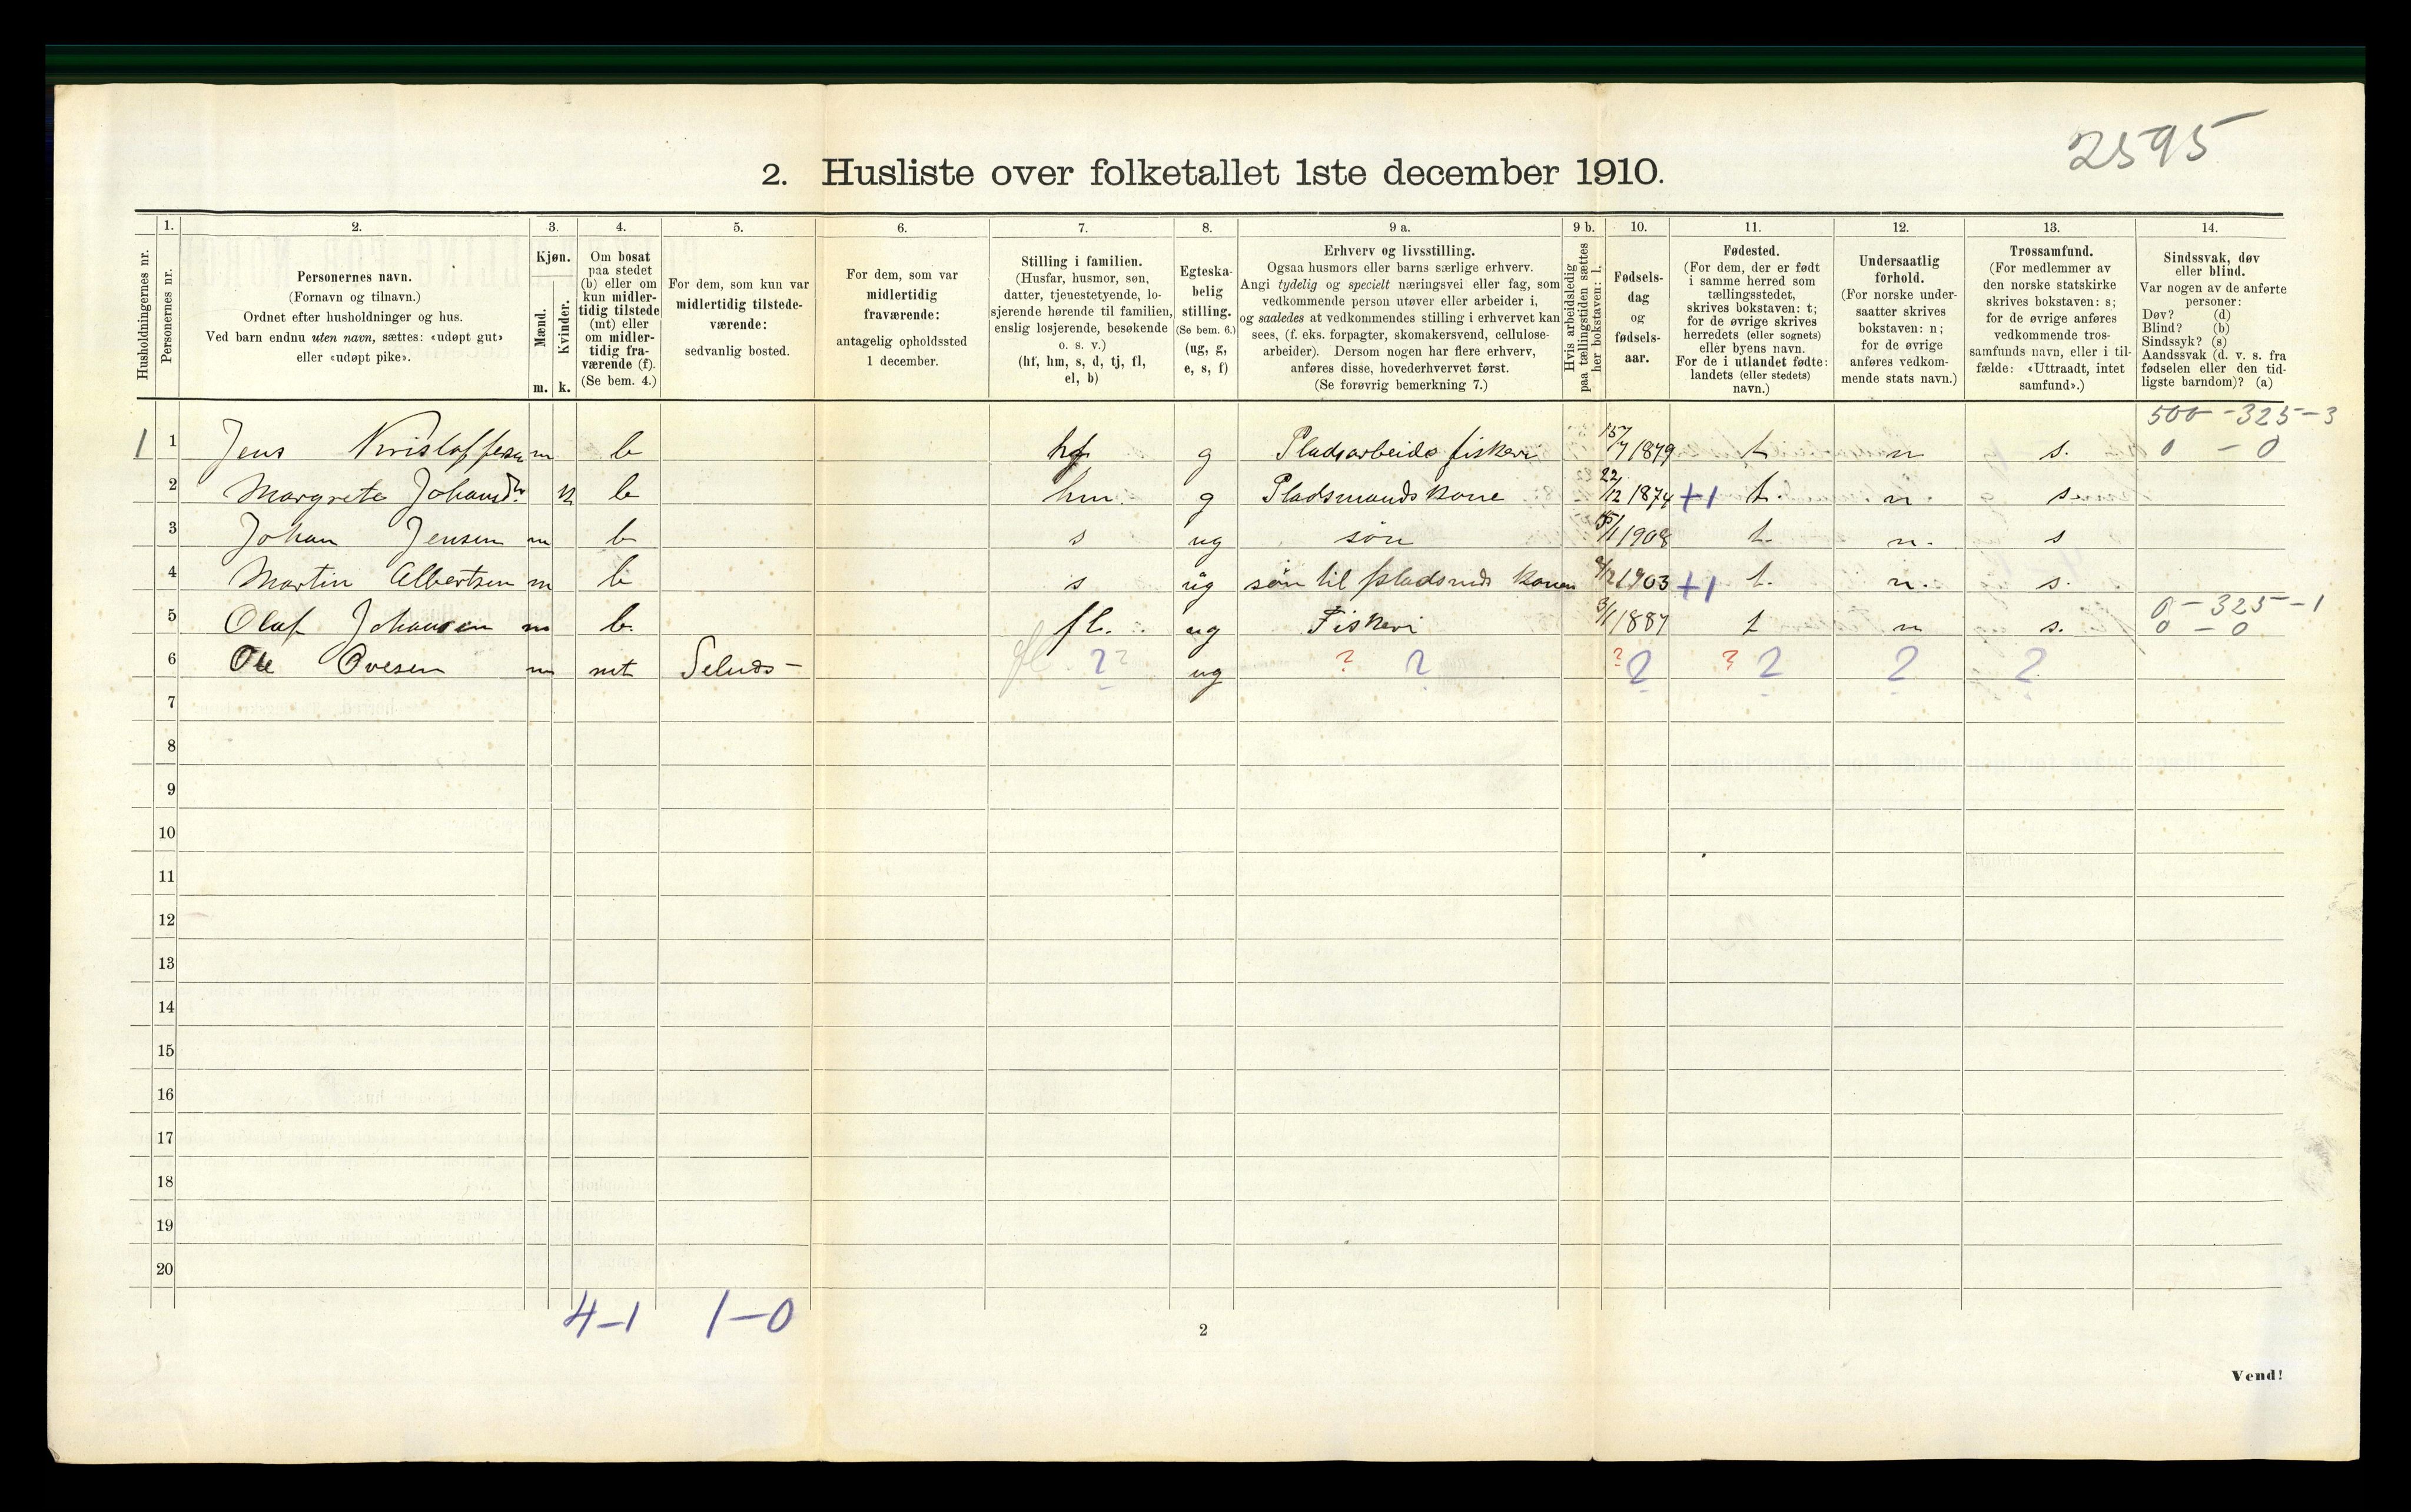 2595
2. Husliste over folketallet 1ste december 1910.
Husholdningernes nr.
1.
Personernes nr.
2.
Personernes navn.
(Fornavn og tilnavn.)
Ordnet efter husholdninger og hus.
Ved barn endnu uten navn, sættes: «udøpt gut»
eller «udøpt pike».
3.
Kjøn.
Mænd.
Kvinder.
m. k.
4.
Om bosat
paa stedet
(b) eller om
kun midler-
tidig tilstede
(mt) eller
om midler-
tidig fra-
værende (f).
(Se bem. 4.)
5.
For dem, som kun var
midlertidig tilstede-
værende:
sedvanlig bosted.
6.
For dem, som var
midlertidig
fraværende:
antagelig opholdssted
1 december.
7.
Stilling i familien.
(Husfar, husmor, søn,
datter, tjenestetyende, lo-
sjerende hørende til familien,
enslig losjerende, besøkende
o. s. v.)
(hf, hm, s, d, tj, fl,
el, b)
8.
Egteska-
belig
stilling.
(Se bem. 6.)
(ug, g,
e, s, f)
9 a.
Erhverv og livsstilling.
Ogsaa husmors eller barns særlige erhverv.
Angi tydelig og specielt næringsvei eller fag, som
vedkommende person utøver eller arbeider i,
og saaledes at vedkommendes stilling i erhvervet kan
sees, (f. eks. forpagter, skomakersvend, cellulose-
arbeider). Dersom nogen har flere erhverv,
anføres disse, hovederhvervet først.
(Se forøvrig bemerkning 7.)
9 b.
Hvis arbeidsledig
paa tællingstiden sættes
her bokstaven: l.
10.
Fødsels-
dag
og
fødsels-
aar.
11.
Fødested.
(For dem, der er født
i samme herred som
tællingsstedet,
skrives bokstaven: t;
for de øvrige skrives
herredets (eller sognets)
eller byens navn.
For de i utlandet fødte:
landets (eller stedets)
navn.)
12.
Undersaatlig
forhold.
(For norske under-
saatter skrives
bokstaven: n;
for de øvrige
anføres vedkom-
mende stats navn.)
13.
Trossamfund.
(For medlemmer av
den norske statskirke
skrives bokstaven: s;
for de øvrige anføres
vedkommende tros-
samfunds navn, eller i til-
fælde: «Uttraadt, intet
samfund».)
14.
Sindssvak, døv
eller blind.
Var nogen av de anførte
personer:
Døv? (d)
Blind? (b)
Sindssyk? (s)
Aandssvak (d. v. s. fra
fødselen eller den tid-
ligste barndom)? (a)
500-325-3
1 1 Jens Kristoffersen m b hf g Pladsarbeide fiskeri 15/7 1879 t n s. 0 - 0
2 Margrete Johansdtr. k b hm g Pladsmandskone 22/12 1874 +1 t. n. s.
3 Johan Jensen m b s ug søn 1908 t. n. s
4 Martin Albertsen m b s ug søn til pladsmds konen 1903 +1 t. n. s.
0-325-1
5 Olaf Johansen m b. fl. ug Fiskeri 3/1 1887 t n s. 0-0
6 Ole Ovesen m mt fl ? ? ug ? ? ? ? ? ? ? ?
7
8
9
10
11
12
13
14
15
16
17
18
19
20
4-1 1-0
2
Vend!